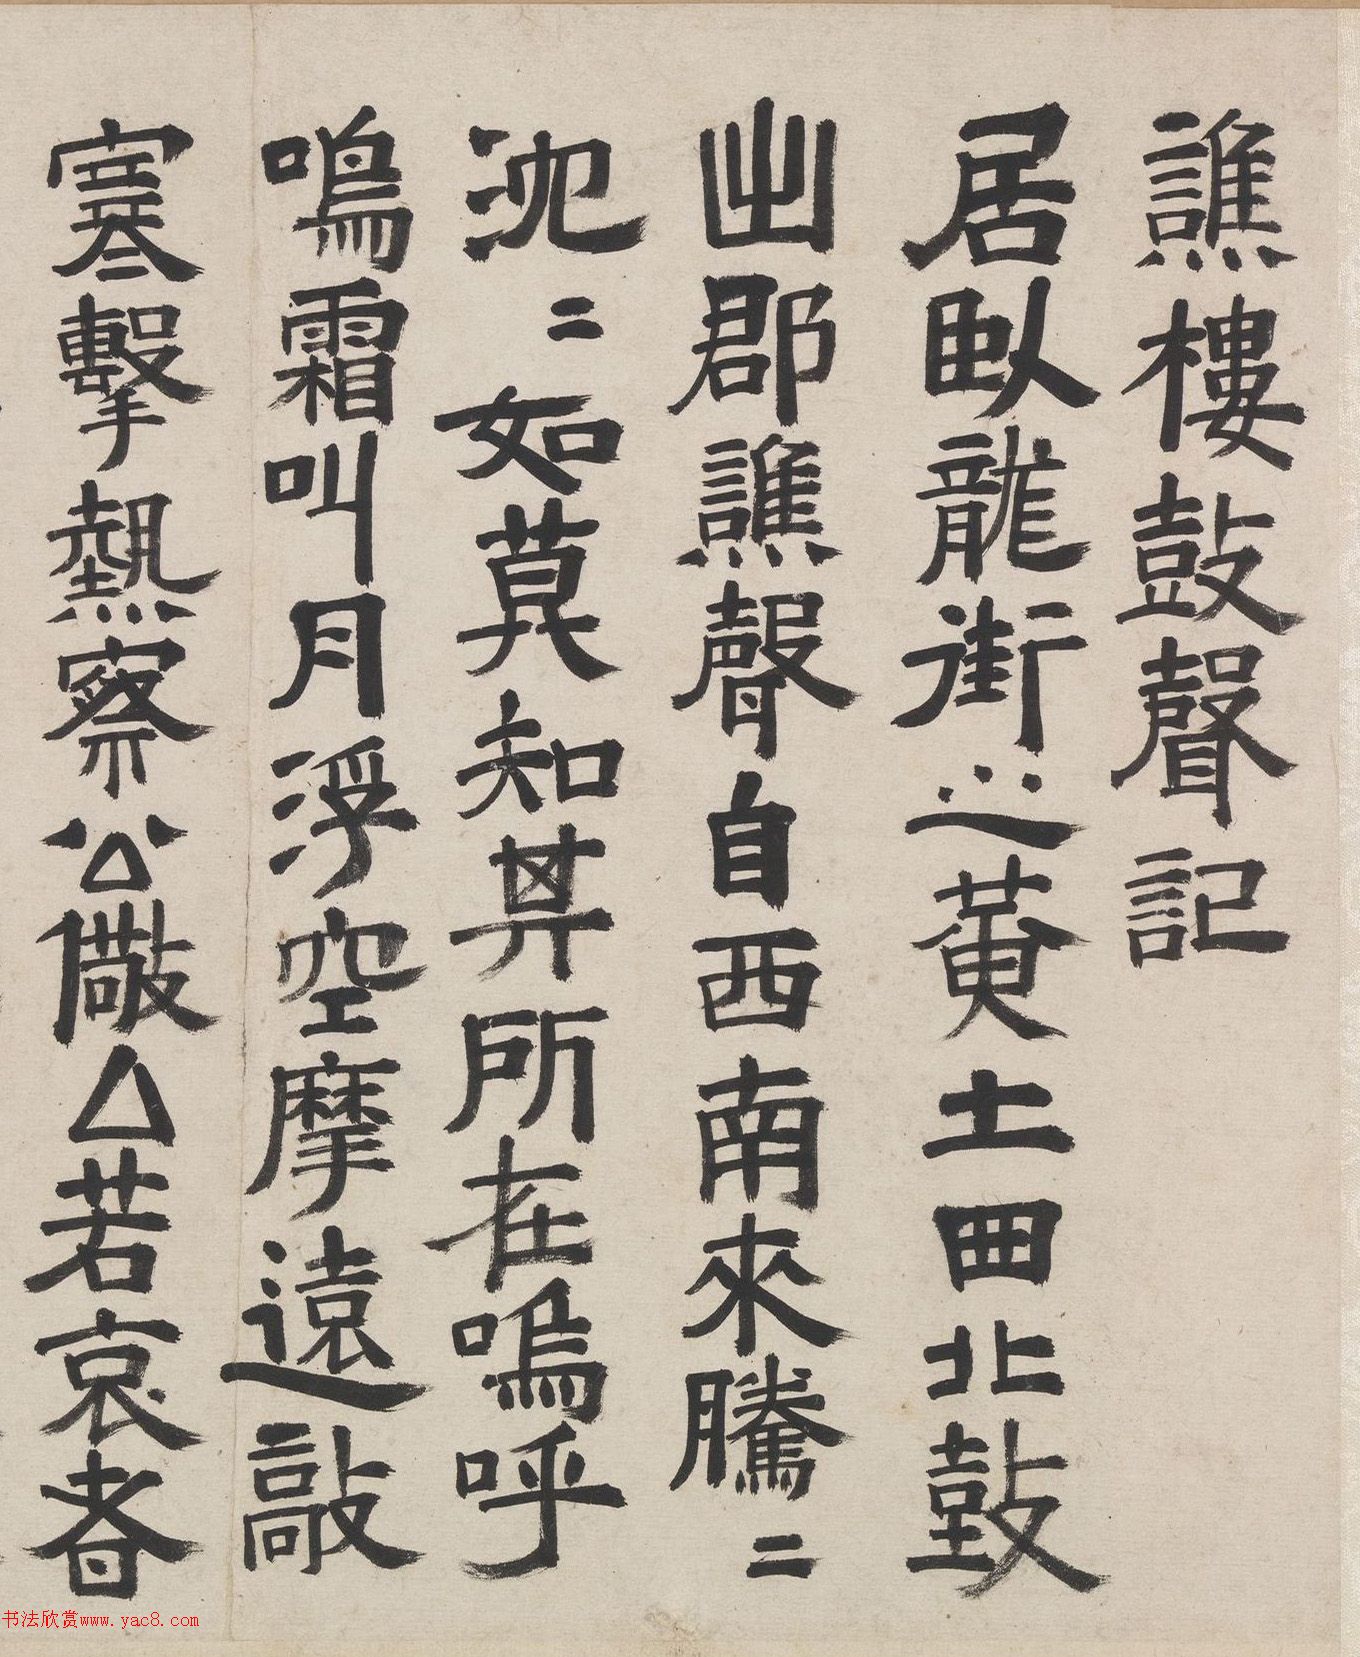 譙樓鼓聲記
居臥龍街之黃土四北鼓
出郡譙聲自西南來騰〻
沉〻如莫知其所在嗚呼
鳴霜叫月浮空摩遠敲
寒擊熱察公儆厶若哀者
书法欣赏www.yac8.com